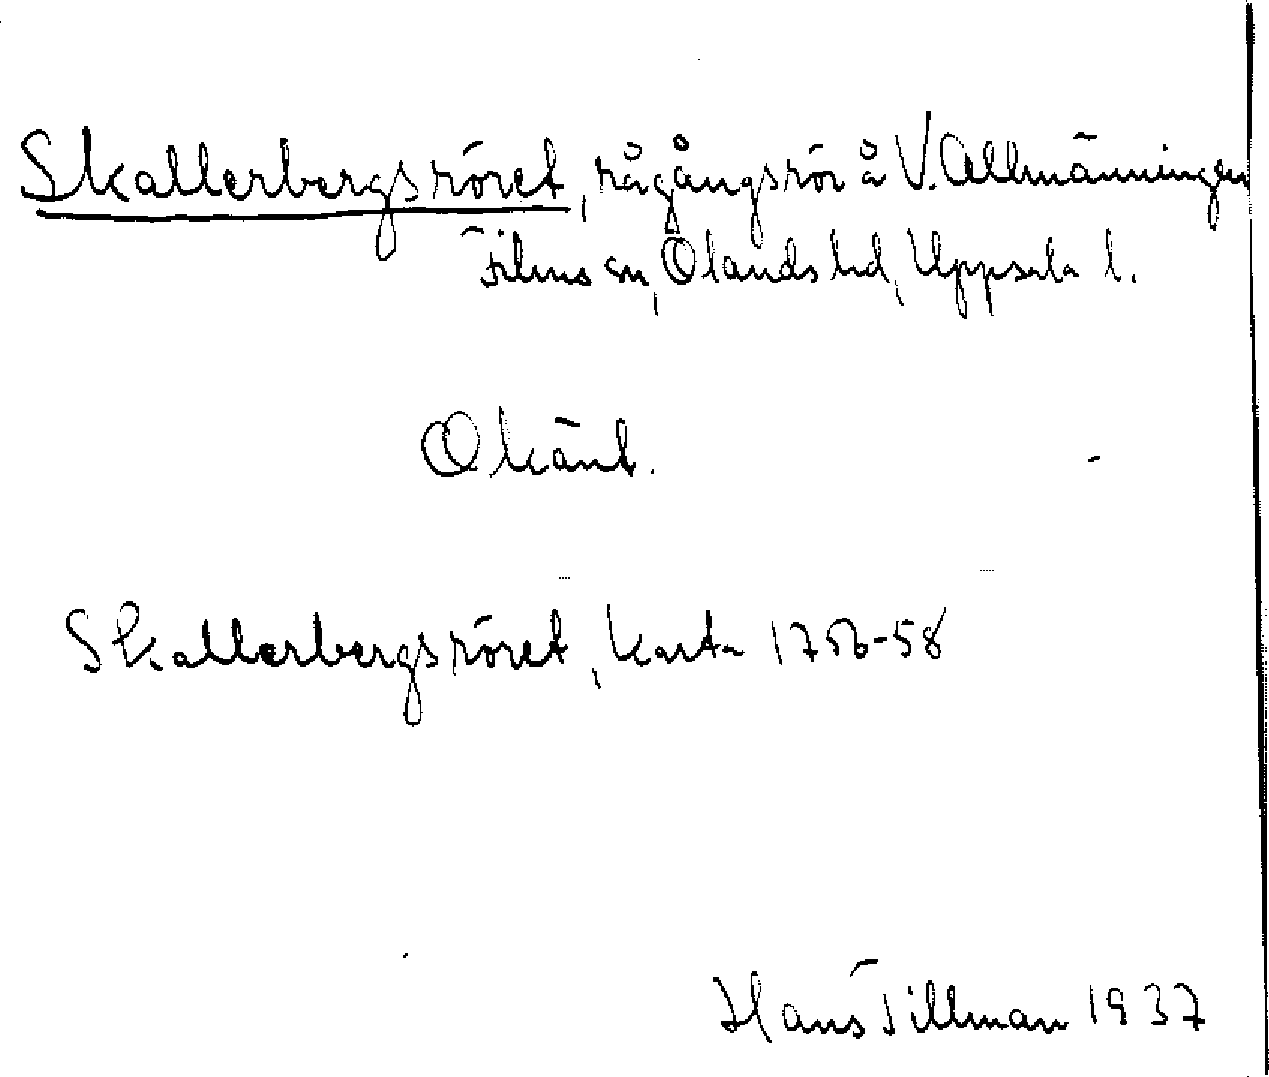 Skallerbergsröret, rågångsrör å V. Allmänningen
Films sn, Ölands hd, Uppsala l.
Okänt.
Skallerbergsröret, karta 1756-58
Hans Tillman 1937